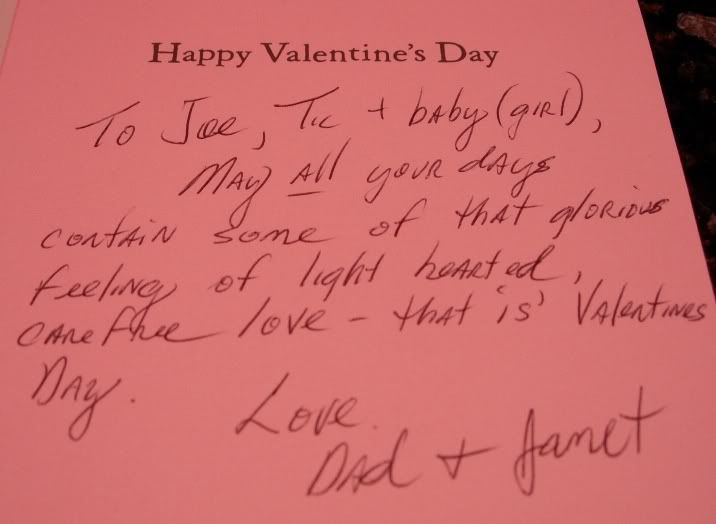 Happy Valentine's Day
To Joe, Tic + baby (girl),
May all your days
contain some of that glorious
feeling of light hearted,
carefree love - that 'is' Valentines
Day.
Love.
Dad + Janet